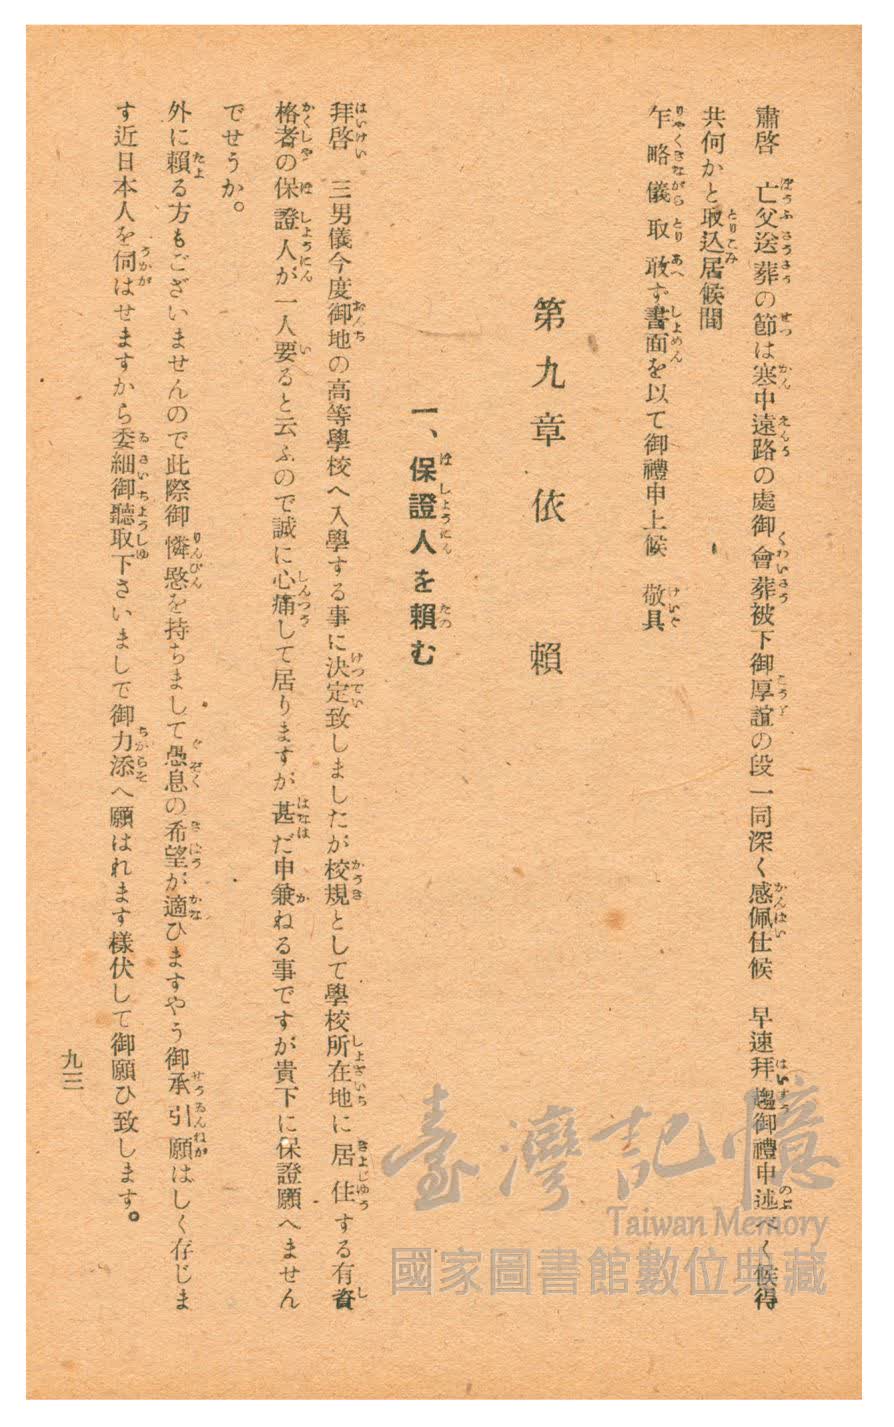 肅啓　亡父送葬の節は寒中遠路の處御會葬被下御厚誼の段一同深く感佩仕候　早速拜趨御禮申述べく候得
共何かと取込居候間
乍略儀取敢ず書面を以て御禮申上候　敬具
第九章　依　賴
一、保證人を賴む
拜啓　三男儀今度御地の高等學校へ入學する事に決定致しましたが校規として學校所在地に居住する有資
格者の保證人が一人要ると云ふので誠に心痛して居りますが甚だ申兼ねる事ですが貴下に保證願へません
でせうか。
外に賴る方もございませんので此際御憐愍を持ちまして愚息の希望が適ひますやう御承引願はしく存じま
す近日本人を伺はせますから委細御聽取下さいまして御力添へ願はれます樣伏して御願ひ致します。
九三
臺灣記憶
Taiwan Memory
國家圖書館數位典藏